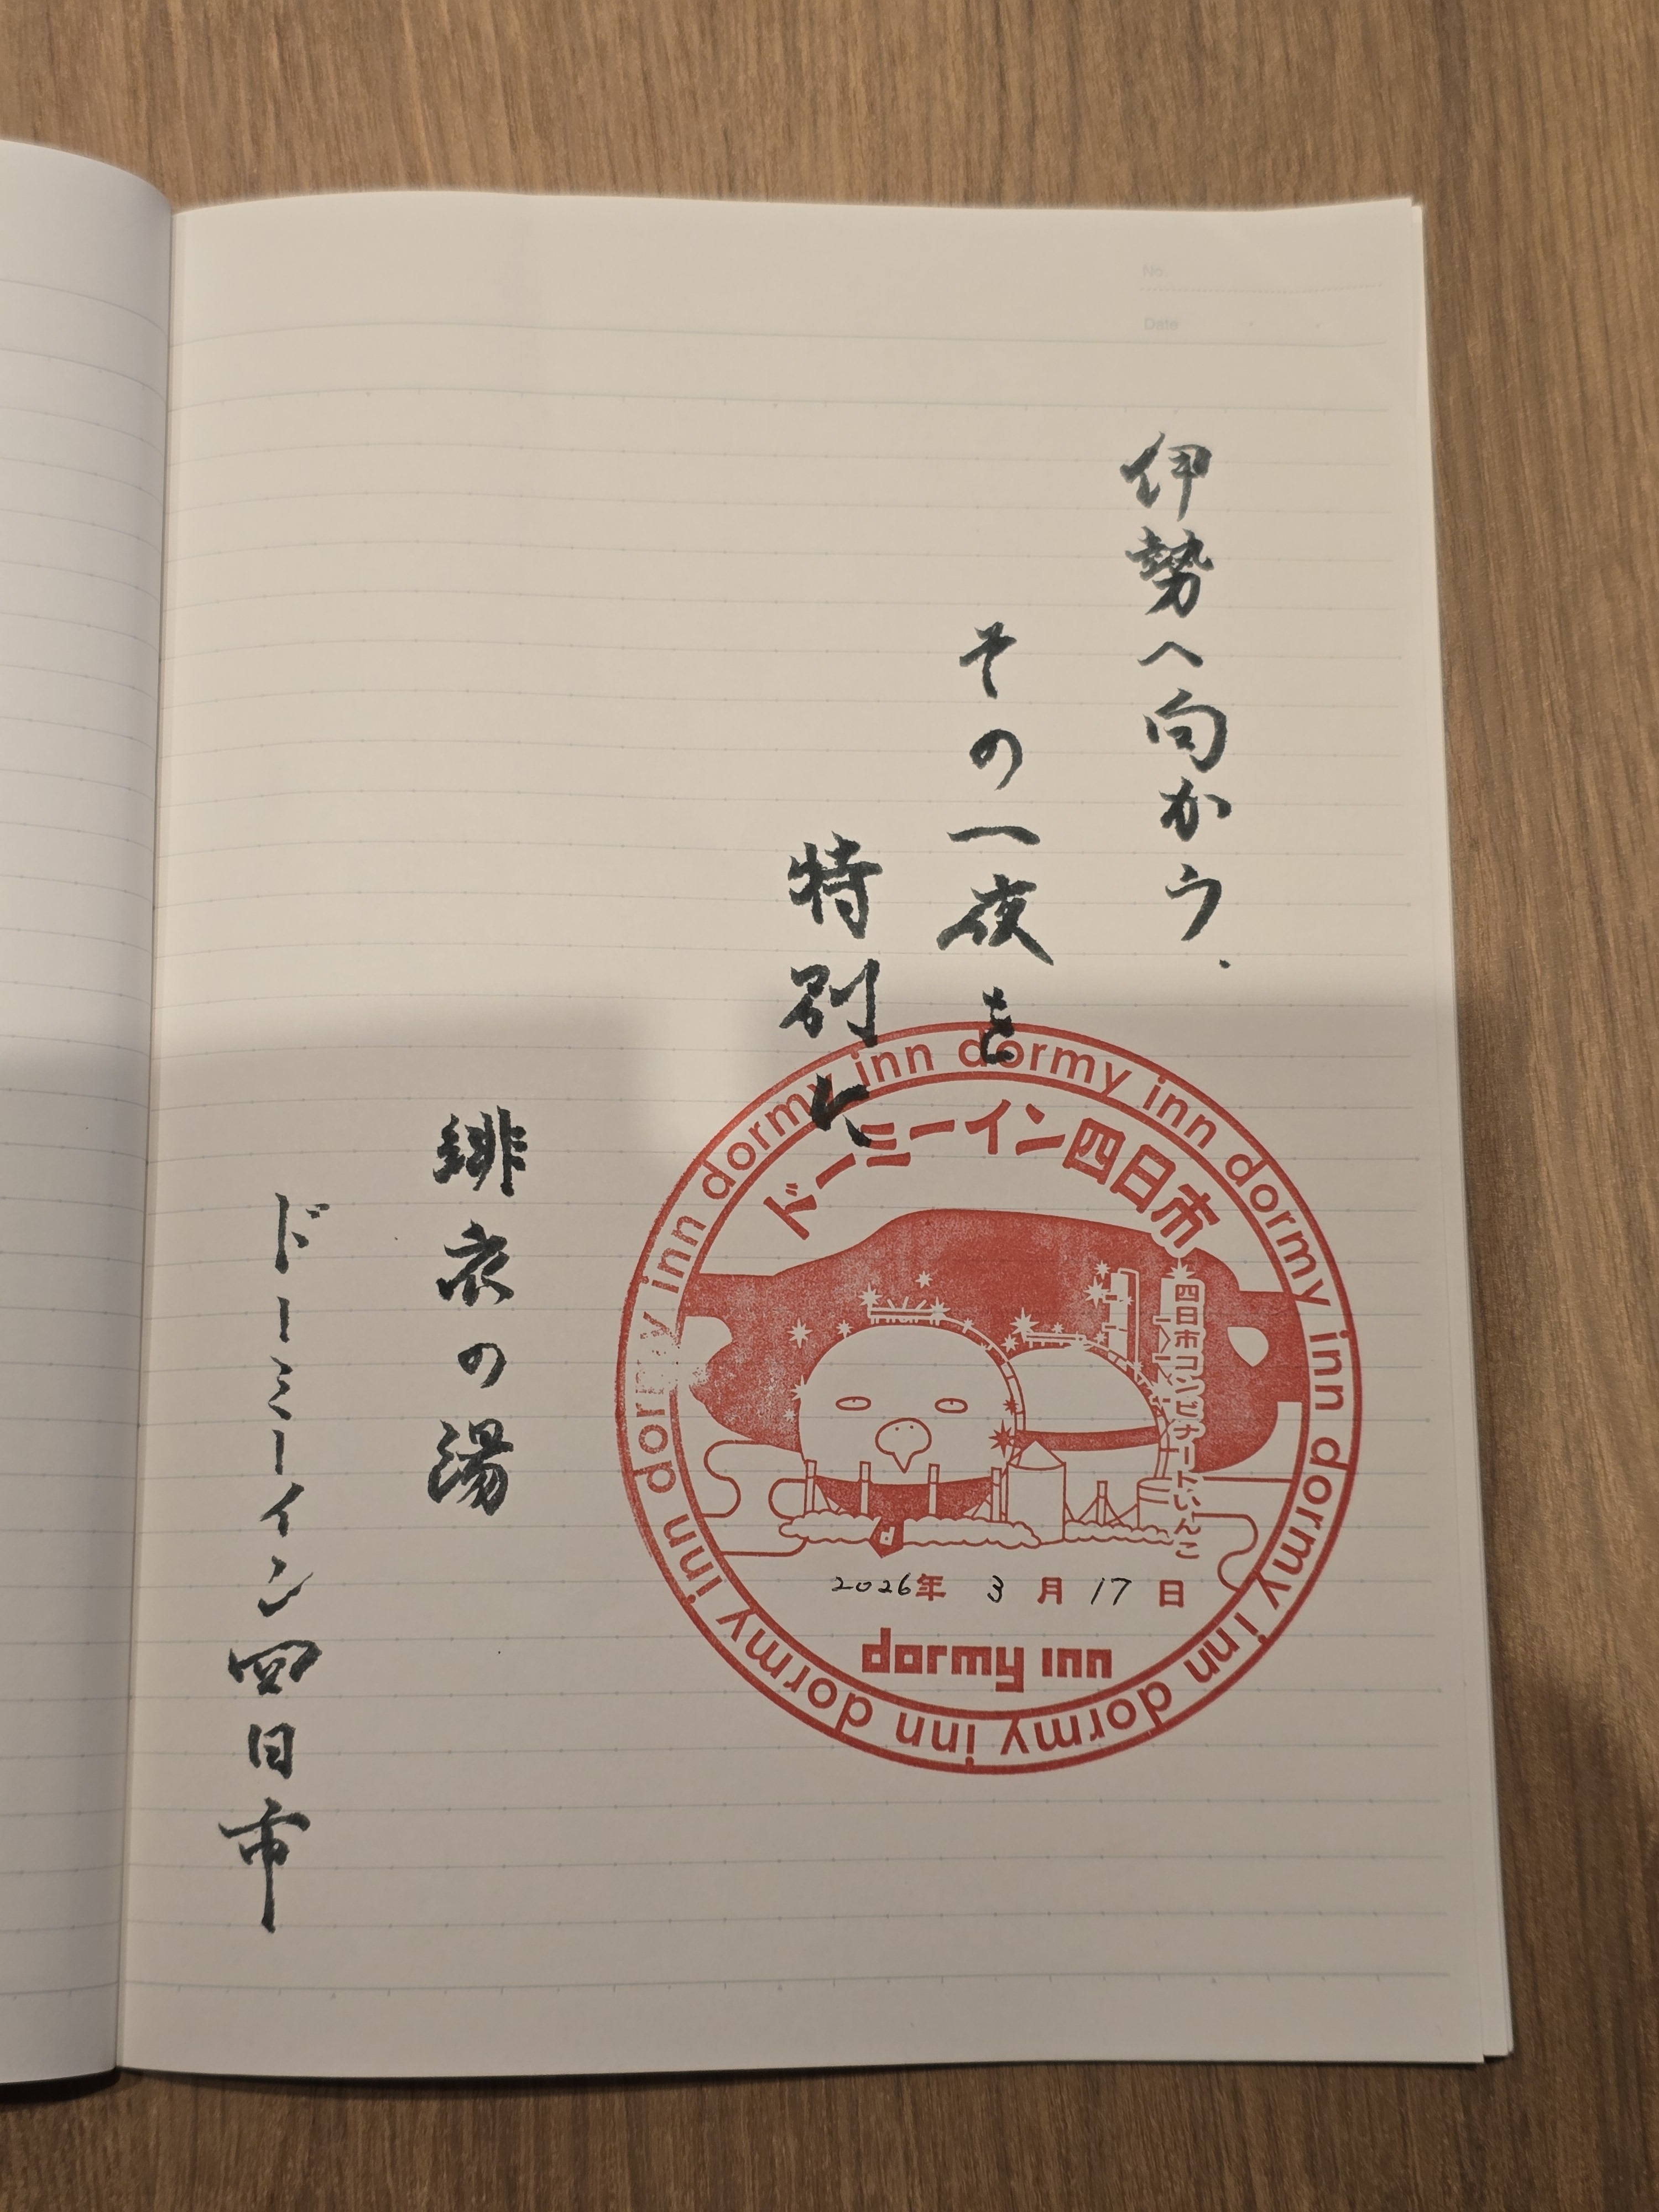 No.
Date
伊勢へ向かう.
その一夜を
特別に
緋衣の湯
ドーミーイン四日市
dormy inn dormy inn dormy inn dormy inn dormy inn dormy inn dormy inn dormy inn
ドーミーイン四日市
四日市コンビナートいんこ
2026年 3月17日
dormy inn